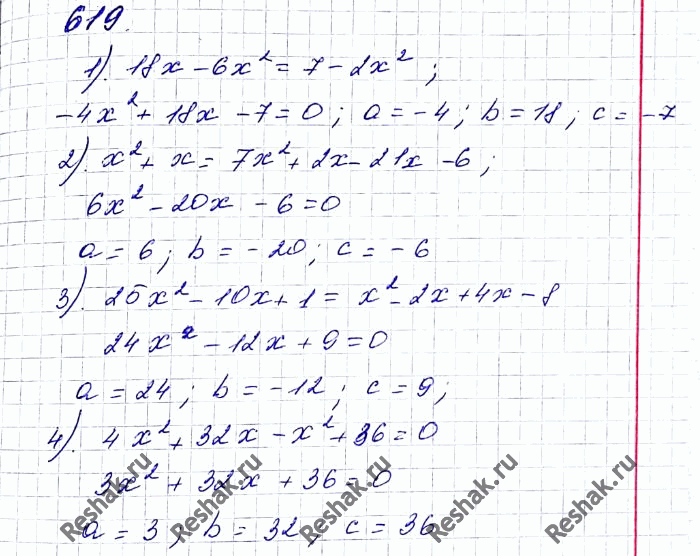 619.
1). 18x - 6x² = 7 - 2x² ;
-4x² + 18x - 7 = 0 ; a = -4 ; b = 18 ; c = -7
2). x² + x = 7x² + 2x - 21x - 6 ;
6x² - 20x - 6 = 0
a = 6 ; b = -20 ; c = -6
3). 25x² - 10x + 1 = x² - 2x + 4x - 8
24x² - 12x + 9 = 0
a = 24 ; b = -12 ; c = 9 ;
4). 4x² + 32x - x² + 36 = 0
3x² + 32x + 36 = 0
a = 3 ; b = 32 ; c = 36
Reshak.ru Reshak.ru Reshak.ru Reshak.ru Reshak.ru